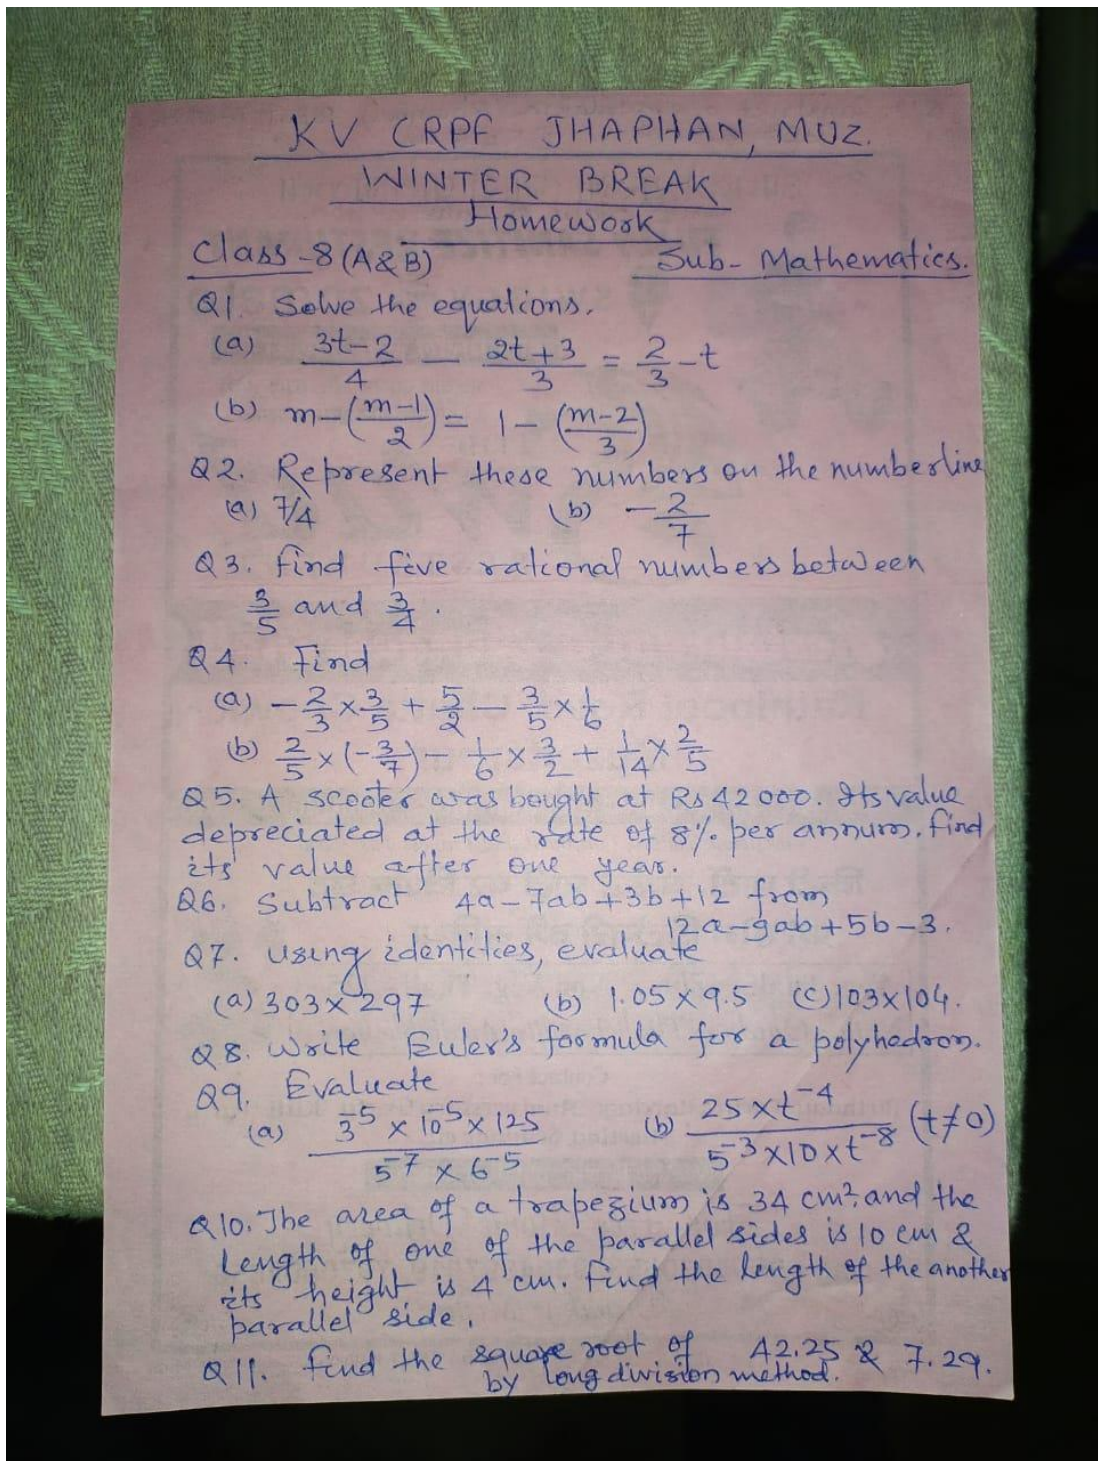 KV CRPF JHAPHAN, MUZ.
WINTER BREAK
Homework
Class-8 (A&B) Sub- Mathematics.
Q1. Solve the equations.
(a) (3t-2)/4 - (2t+3)/3 = 2/3 - t
(b) m-((m-1)/2) = 1-((m-2)/3)
Q2. Represent these numbers on the numberline
(a) 7/4 (b) -2/7
Q3. find five rational numbers between
3/5 and 3/4.
Q4. Find
(a) -2/3 × 3/5 + 5/2 - 3/5 × 1/6
(b) 2/5 × (-3/7) - 1/6 × 3/2 + 1/14 × 2/5
Q5. A scooter was bought at Rs 42000. Its value
depreciated at the rate of 8% per annum. find
its value after one year.
Q6. Subtract 4a-7ab+3b+12 from
12a-9ab+5b-3.
Q7. using identities, evaluate
(a) 303×297 (b) 1.05×9.5 (c) 103×104.
Q8. Write Euler's formula for a polyhedron.
Q9. Evaluate
(a) (3^-5 × 10^-5 × 125)/(5^-7 × 6^-5) (b) (25×t^-4)/(5^-3×10×t^-8) (t≠0)
Q10. The area of a trapezium is 34 cm² and the
length of one of the parallel sides is 10 cm &
its height is 4 cm. find the length of the another
parallel side.
Q11. find the square root of 42.25 & 7.29.
by long division method.